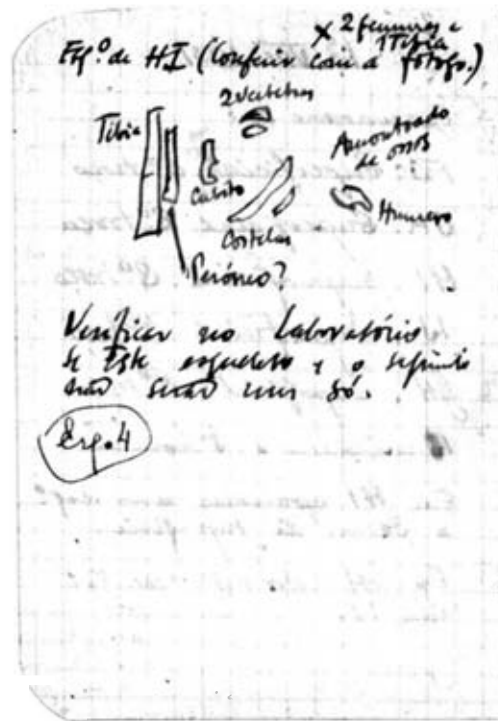 x 2 femures e
1 Tibia
Esqº. de HI (Conferir com a fotogr.)
2 vertebras
Tibia
Amontoado
de ossos
Cubito
Humero
Costelas
Peróneo?
Verificar no Laboratório
se este esqueleto e o segundo
não serão um só.
Esq. 4